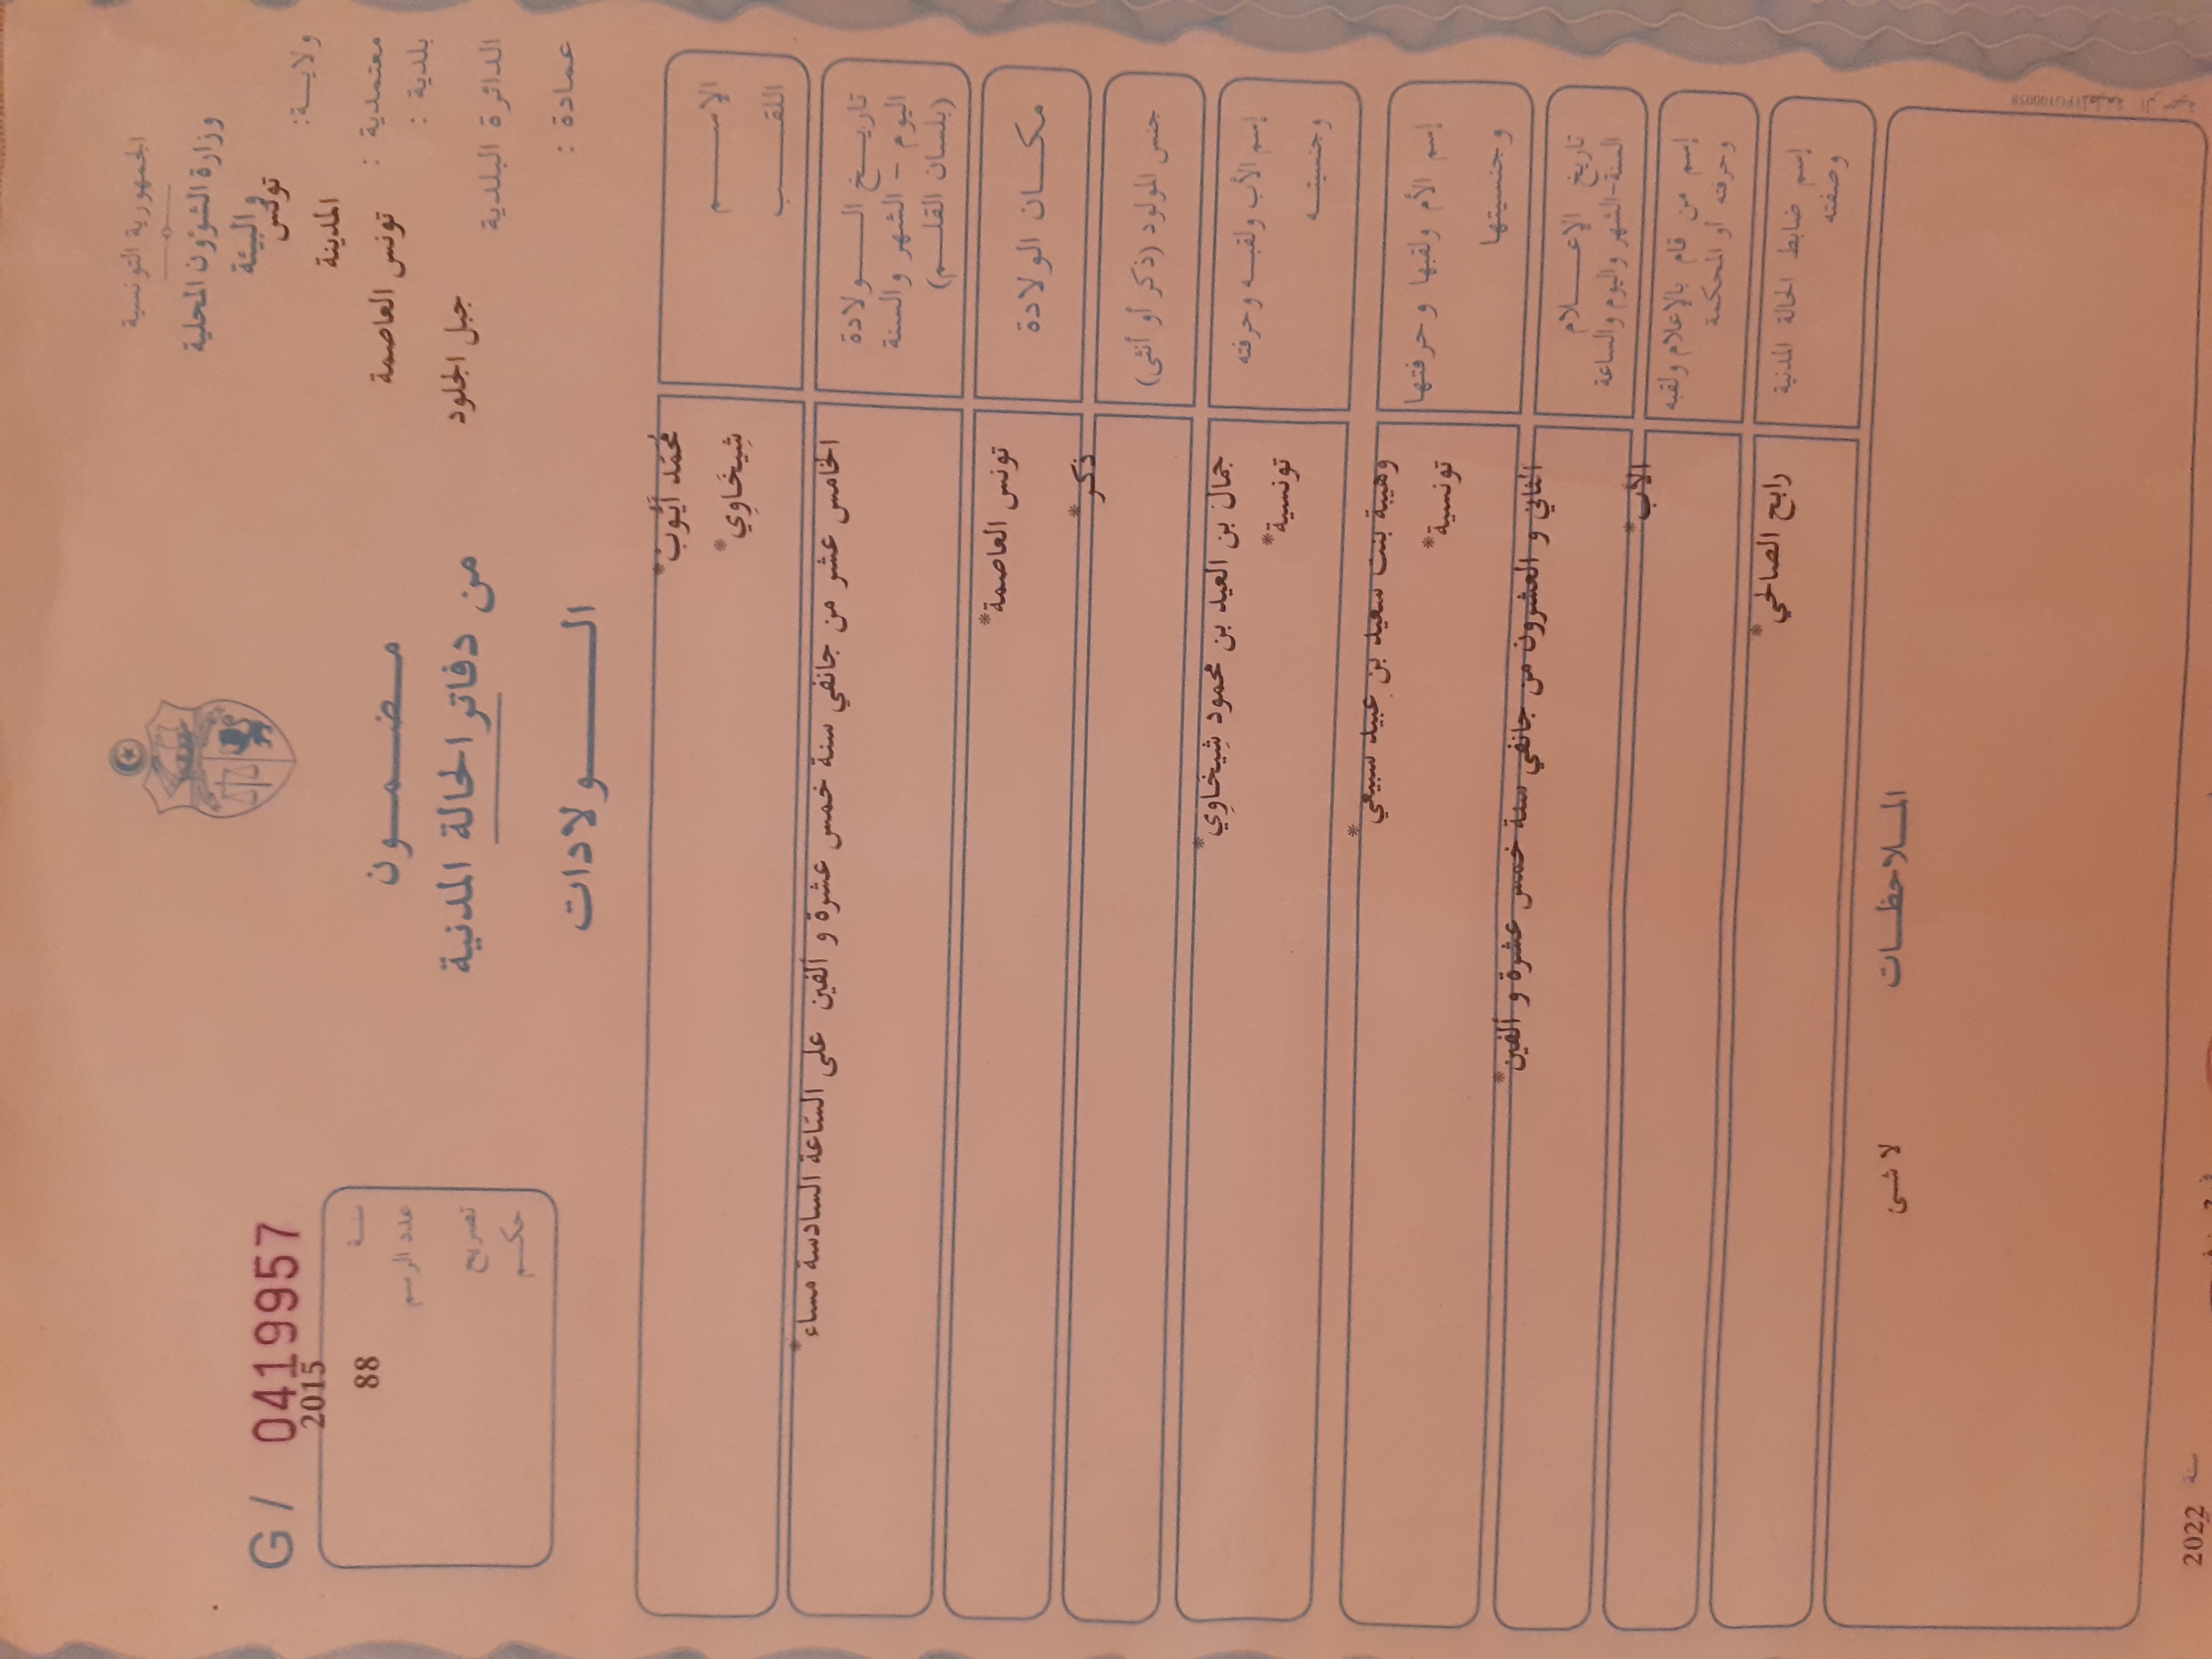 الجمهورية التونسية
وزارة الشؤون المحلية
والبيئة
ولايـــة: تونس
معتمدية : المدينة
بلدية : تونس العاصمة
الدائرة البلدية جبل الجلود
عمادة :
مـضـمـــون
من دفاتر الحالة المدنية
الـــــولادات
G / 0419957
سنـــة 2015
عدد الرسم 88
تصريح
حكـــم
الإســـــم محُمّد أيّوب*
اللقـــــب شِيخَاوِي*
تاريـــخ الـــــولادة
اليوم - الشهر والسنة
(بلسان القلـــم)
الخامس عشر من جانفي سنة خمس عشرة و ألفين على السّاعة السادسة مساء*
مكـــان الولادة تونس العاصمة*
جنس المولود (ذكر أو أنثى) ذكر*
إسم الأب ولقبـــه وحرفته جمال بن العيد بن محمود شِيخَاوِي*
وجنسيتـــه تونسية*
إسم الأم ولقبها وحرفتها وهيبة بنت سعيد بن عبيد سبيعي*
وجنسيتها تونسية*
تاريخ الإعـــــلام
السنة-الشهر واليوم والساعة
الثاني و العشرون من جانفي سنة خمس عشرة و ألفين*
إسم من قام بالإعلام ولقبه
وحرفته أو المحكمة
الأب*
إسم ضابط الحالة المدنية
وصفته
رابح الصالحي*
المـــلاحظـــات
لا شئ
سنة 2022